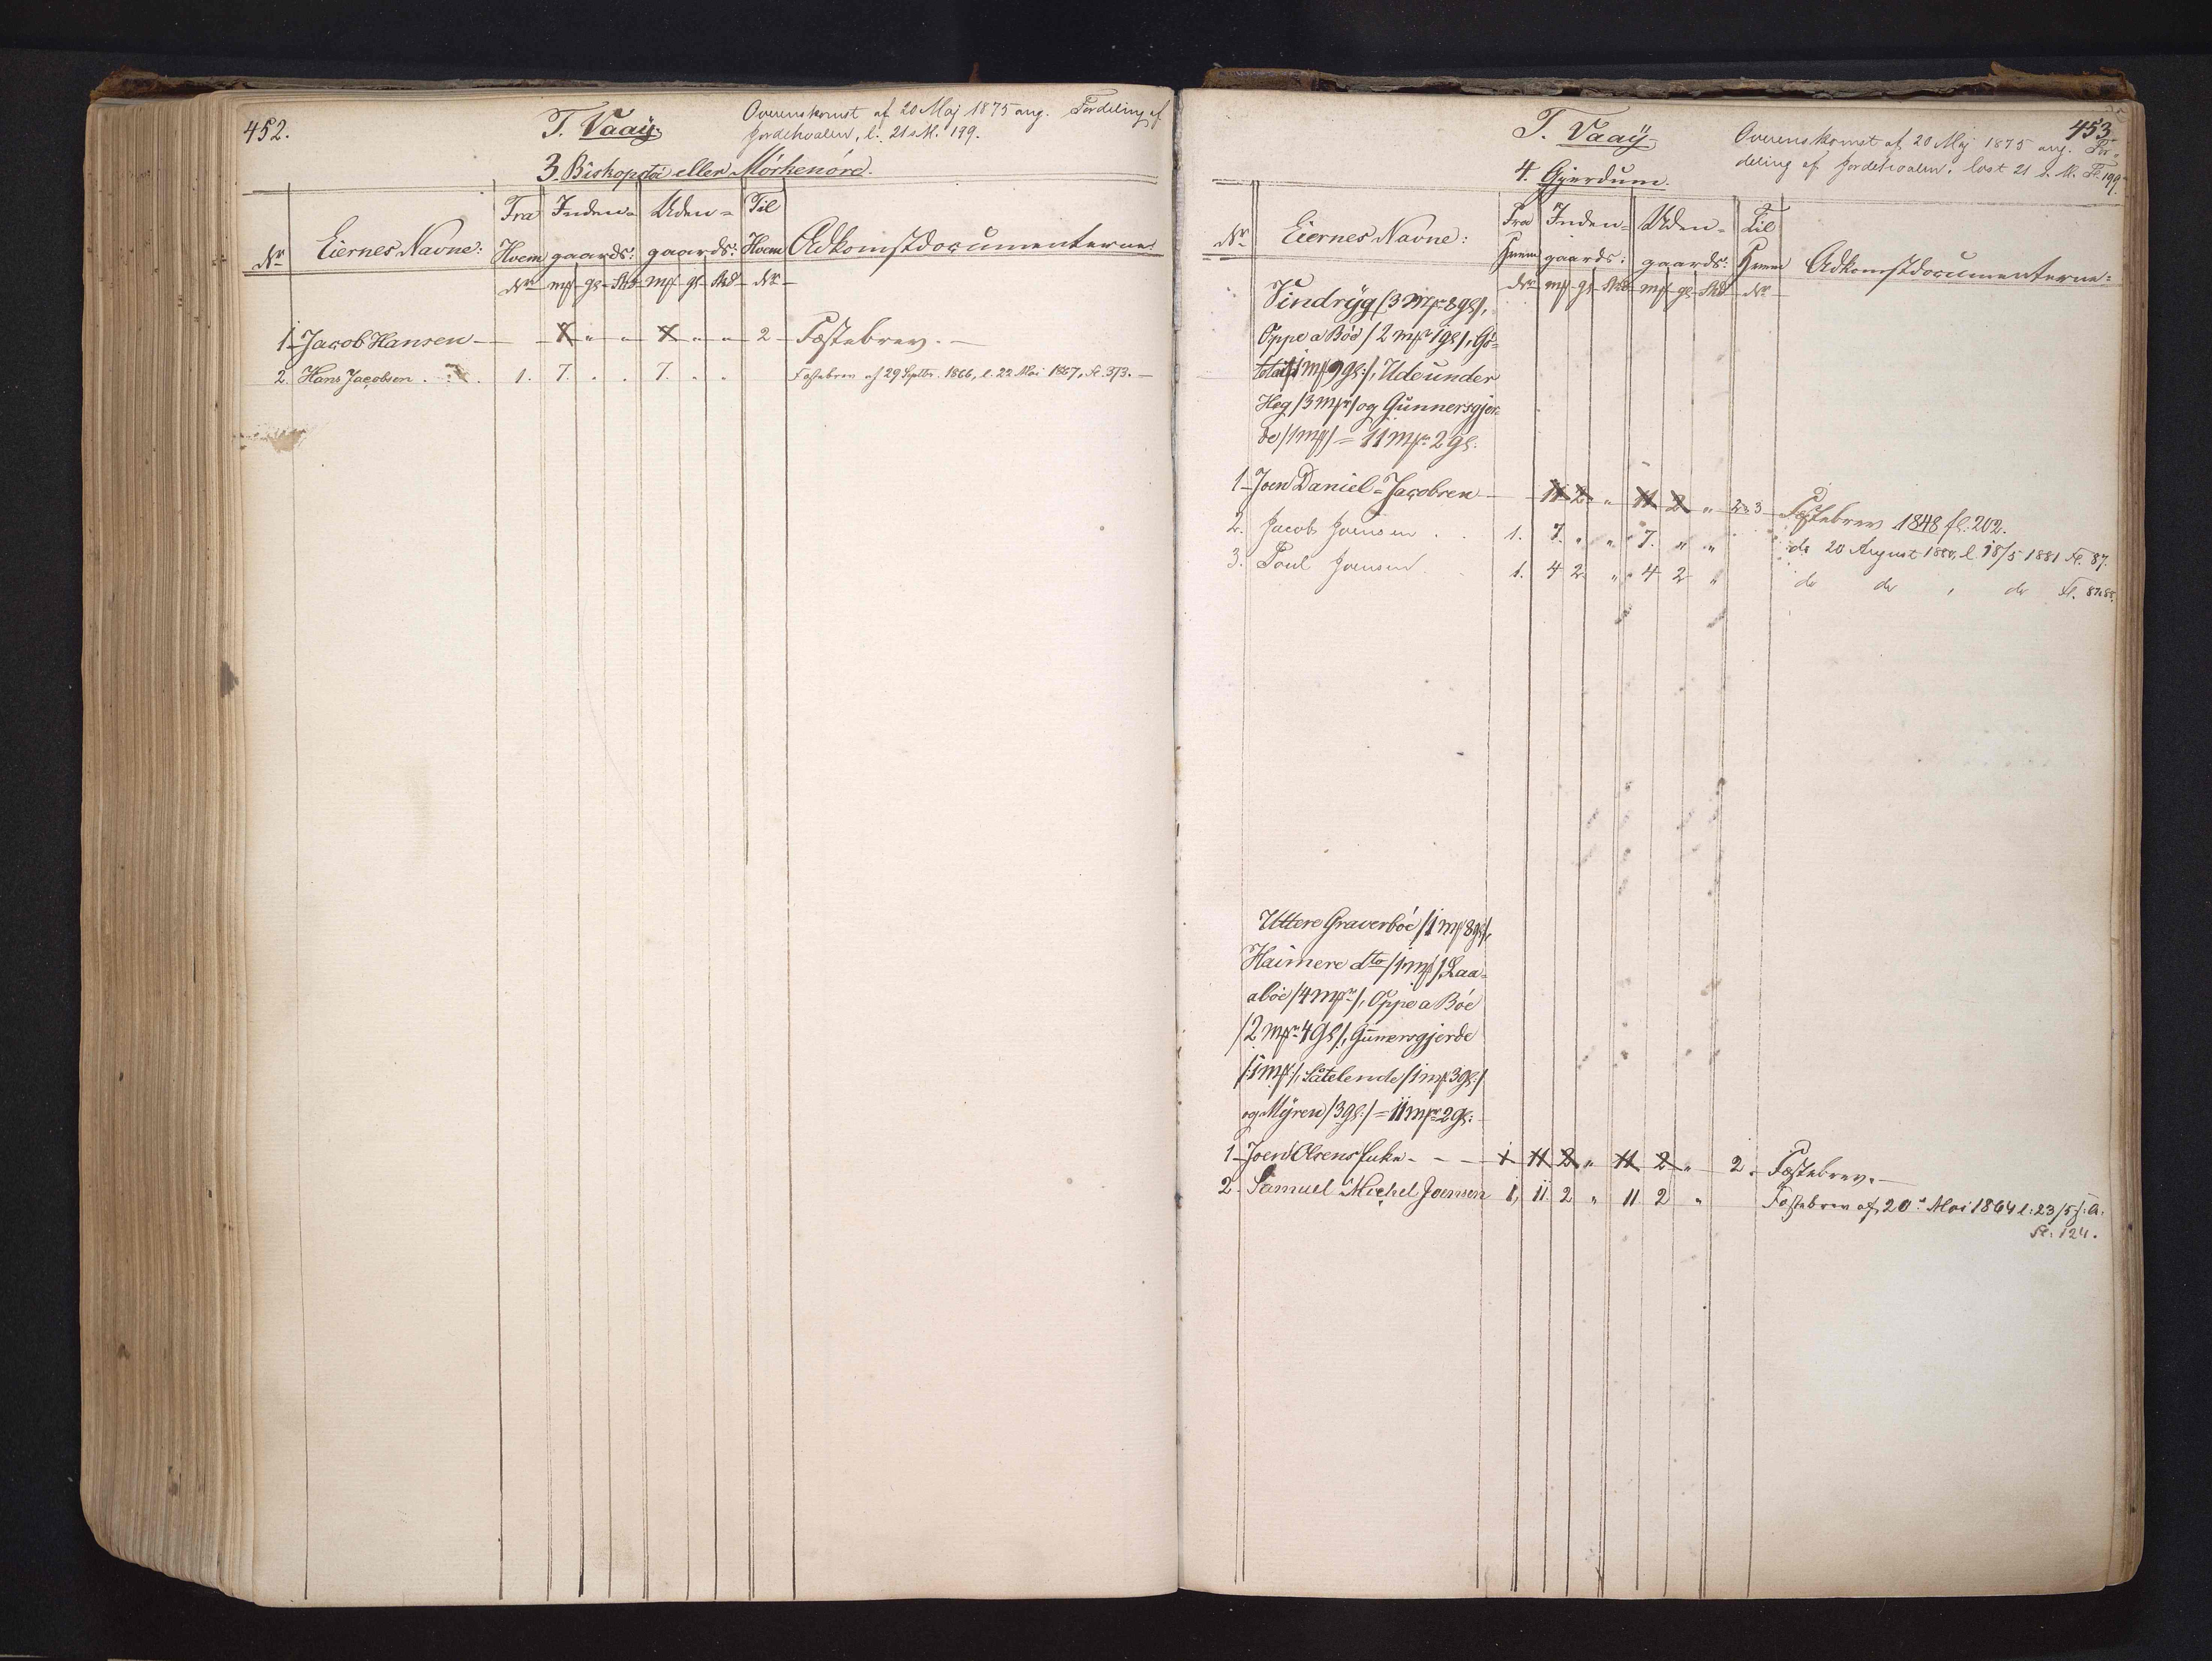 452.
T. Vaaÿ
Overenskomst af 20 Maj 1875 ang. Fordeling af
Jordehvalen, l. 21 s. M. 199.
3. Biskopstö eller Mörkenöre.
Nr Eiernes Navne: Fra Hvem Nr Inden-gaards: mk gl Skd Uden-gaards: mk gl Skd Til Hvem Nr Adkomstdocumenterne:
1 Jacob Hansen - 7 " " 7 " " 2 - Fæstebrev. -
2. Hans Jacobsen . . 1. 7. . . 7. . . Fæstebrev af 29 Septbr. 1866, l. 22 Mai 1867, Fl. 373. -
453
T. Vaaÿ
Overenskomst af 20 Maj 1875 ang. For-
deling af Jordehvalen. læst 21 s. M. Fl. 199.
4. Gjerdum.
Nr Eiernes Navne: Fra Hvem Nr Inden-gaards: mk gl Skd Uden-gaards: mk gl Skd Til Hvem Nr Adkomstdocumenterne:
Vindrÿg /3 Mkr 8 gl/,
Oppe a Böe /2 mkr 1 gl/,
/1 mk 9 gl:/, Udeunder
Heg /3 Mkr/ og Gunnersgjer-
de /1 mk/ = 11 Mkr 2 gl.
1 Joen Daniel Jacobsen - 11 2 " 11 2 " 2 & 3 - Fæstebrev 1848 fl. 202.
2. Jacob Joensen . . 1. 7. " " 7. " " do 20 August 1880, l. 18/5 1881 Fl. 87.
3. Poul Joensen . 1. 4 2 " 4 2 " do do , do Fl. 87 & 88.
Uttere Graverböe /1 mk 8 gl/,
Haimere dto /1 mk/, Laa-
aböe /4 mkr/, Oppe a Böe
/2 mkr 4 Gl/, Gunnersgjerde
/:1 mk:/, Låtelende /1 mk 3 gl:/
og Mÿren /3 gl:/ = 11 mkr 2 gl:
1 Joen Olsens Enke - - - 1 11 2 " 11 2 " 2. Fæstebrev. -
2. Samuel Michel Joensen 1, 11 2 " 11 2 " Fæstebrev af 20de Mai 1864 l: 23/5 s: A:
Fl: 124.